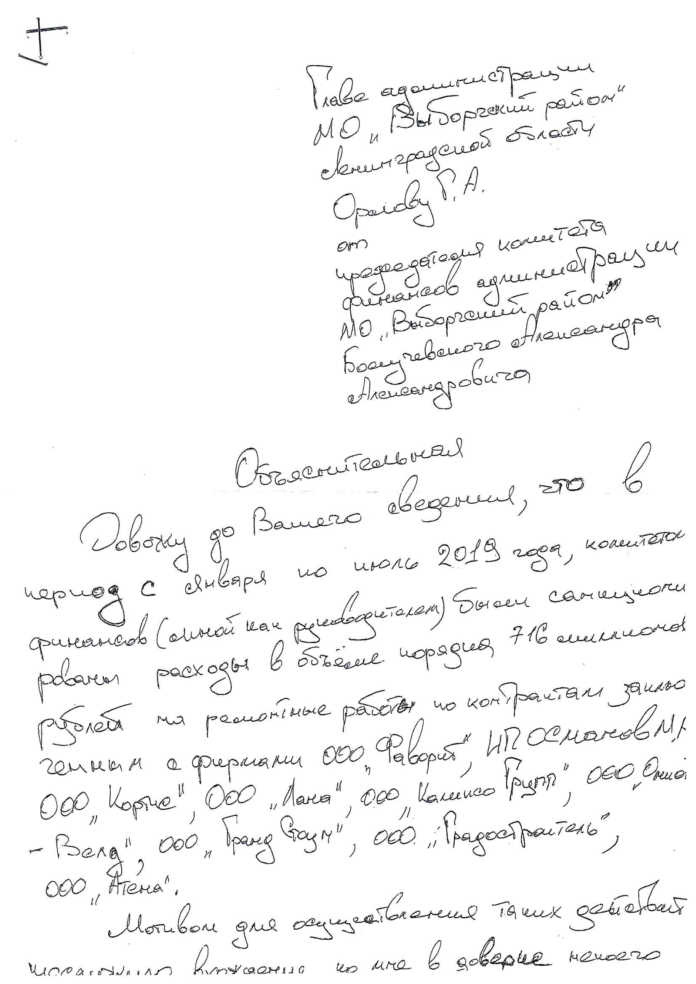 Главе администрации
МО „Выборгский район"
Ленинградской области
Орлову Г. А.
от
председателя комитета
финансов администрации
МО „Выборгский район"
Болучевского Александра
Александровича
Объяснительная
Довожу до Вашего сведения, что в
период с января по июль 2019 года, комитетом
финансов (мной как руководителем) были санкциони
рованы расходы в объёме порядка 716 миллионов
рублей на ремонтные работы по контрактам заклю
ченным с фирмами ООО „Фаворит", ИП Османов М.
ООО „Корте", ООО „Лана", ООО „Калипсо Групп", ООО
- Велд", ООО „Гранд Строй", ООО „Градостроитель",
ООО „Атена".
Мотивом для осуществления таких действий
по мне в доверие некоего